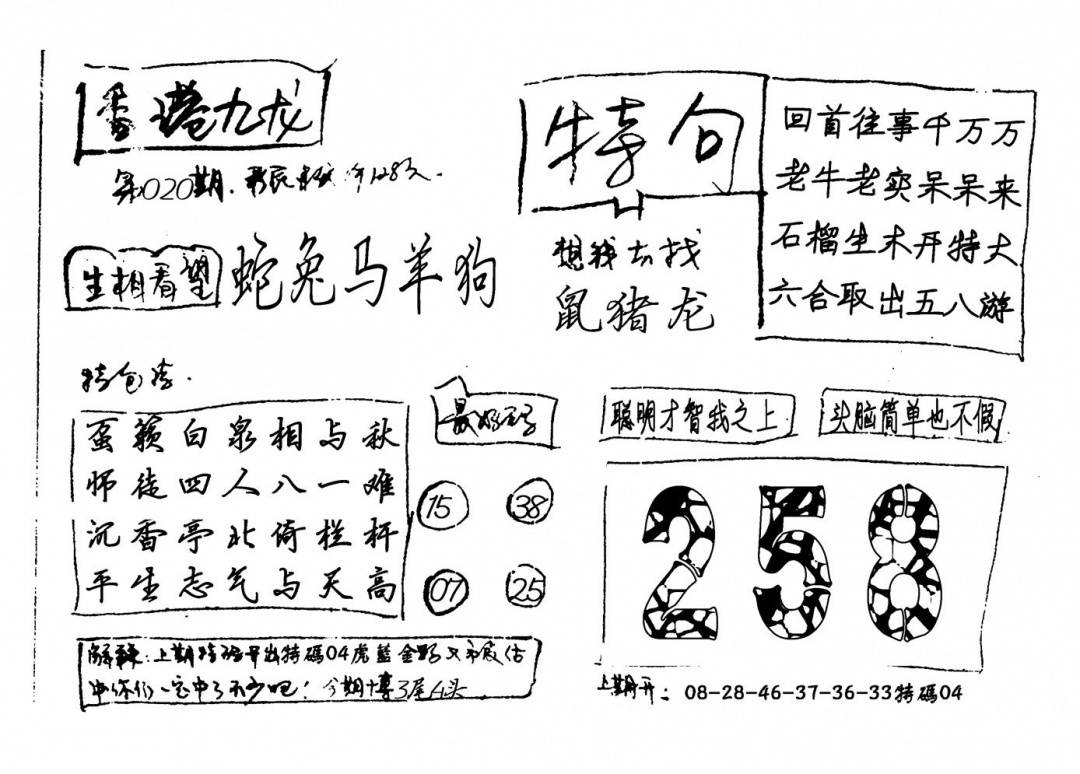 香港九龙
第020期.
生相看望
蛇兔马羊狗
特句
想我去找
鼠猪龙
回首往事千万万
老牛老实呆呆来
石榴生木开特大
六合取出五八游
特包
蛋簸白泉相与秋
师徒四人八一难
沉香亭北倚栏杆
平生志气与天高
15 38
07 25
聪明才智我之上
头脑简单也不假
258
解释:上期特码开出特碼04虎蓝金
中你们一定中了不少吧!今期博3尾4头
上期开:08-28-46-37-36-33特碼04